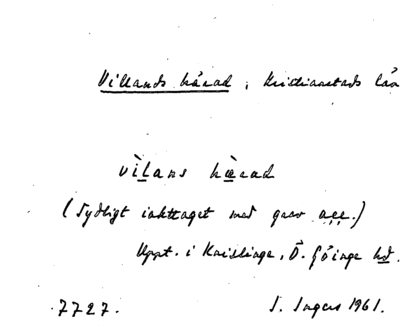 Villands härad, Kristianstads län
vìlans hæ̀rad
(Tydligt iakttaget med grav acc.)
Uppt. i Knislinge, Ö. Göinge hd.
7727. I. Ingers 1961.